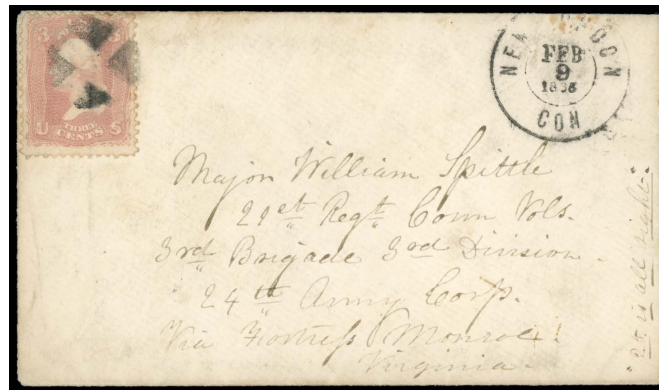 3 3
U THREE CENTS S
NEW LONDON
FEB
9
CON
Major William Spittle
21st Regt Conn Vols.
3rd Brigade 3rd Division.
24th Army Corps.
Via Fortress Monroe.
Virginia.
is all right."